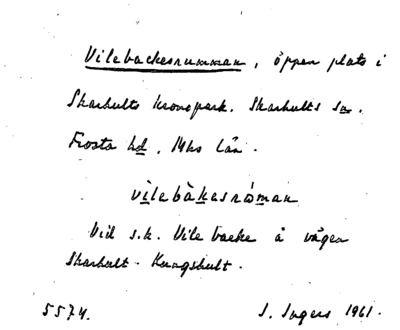 Vilebackesrumman, öppen plats i
Skarhults kronopark. Skarhults sn.
Frosta hd, Mhs län.
vìlebàkesròman
Vid s.k. Vile backe å vägen
Skarhult - Kungshult.
5574. I. Ingers 1961.